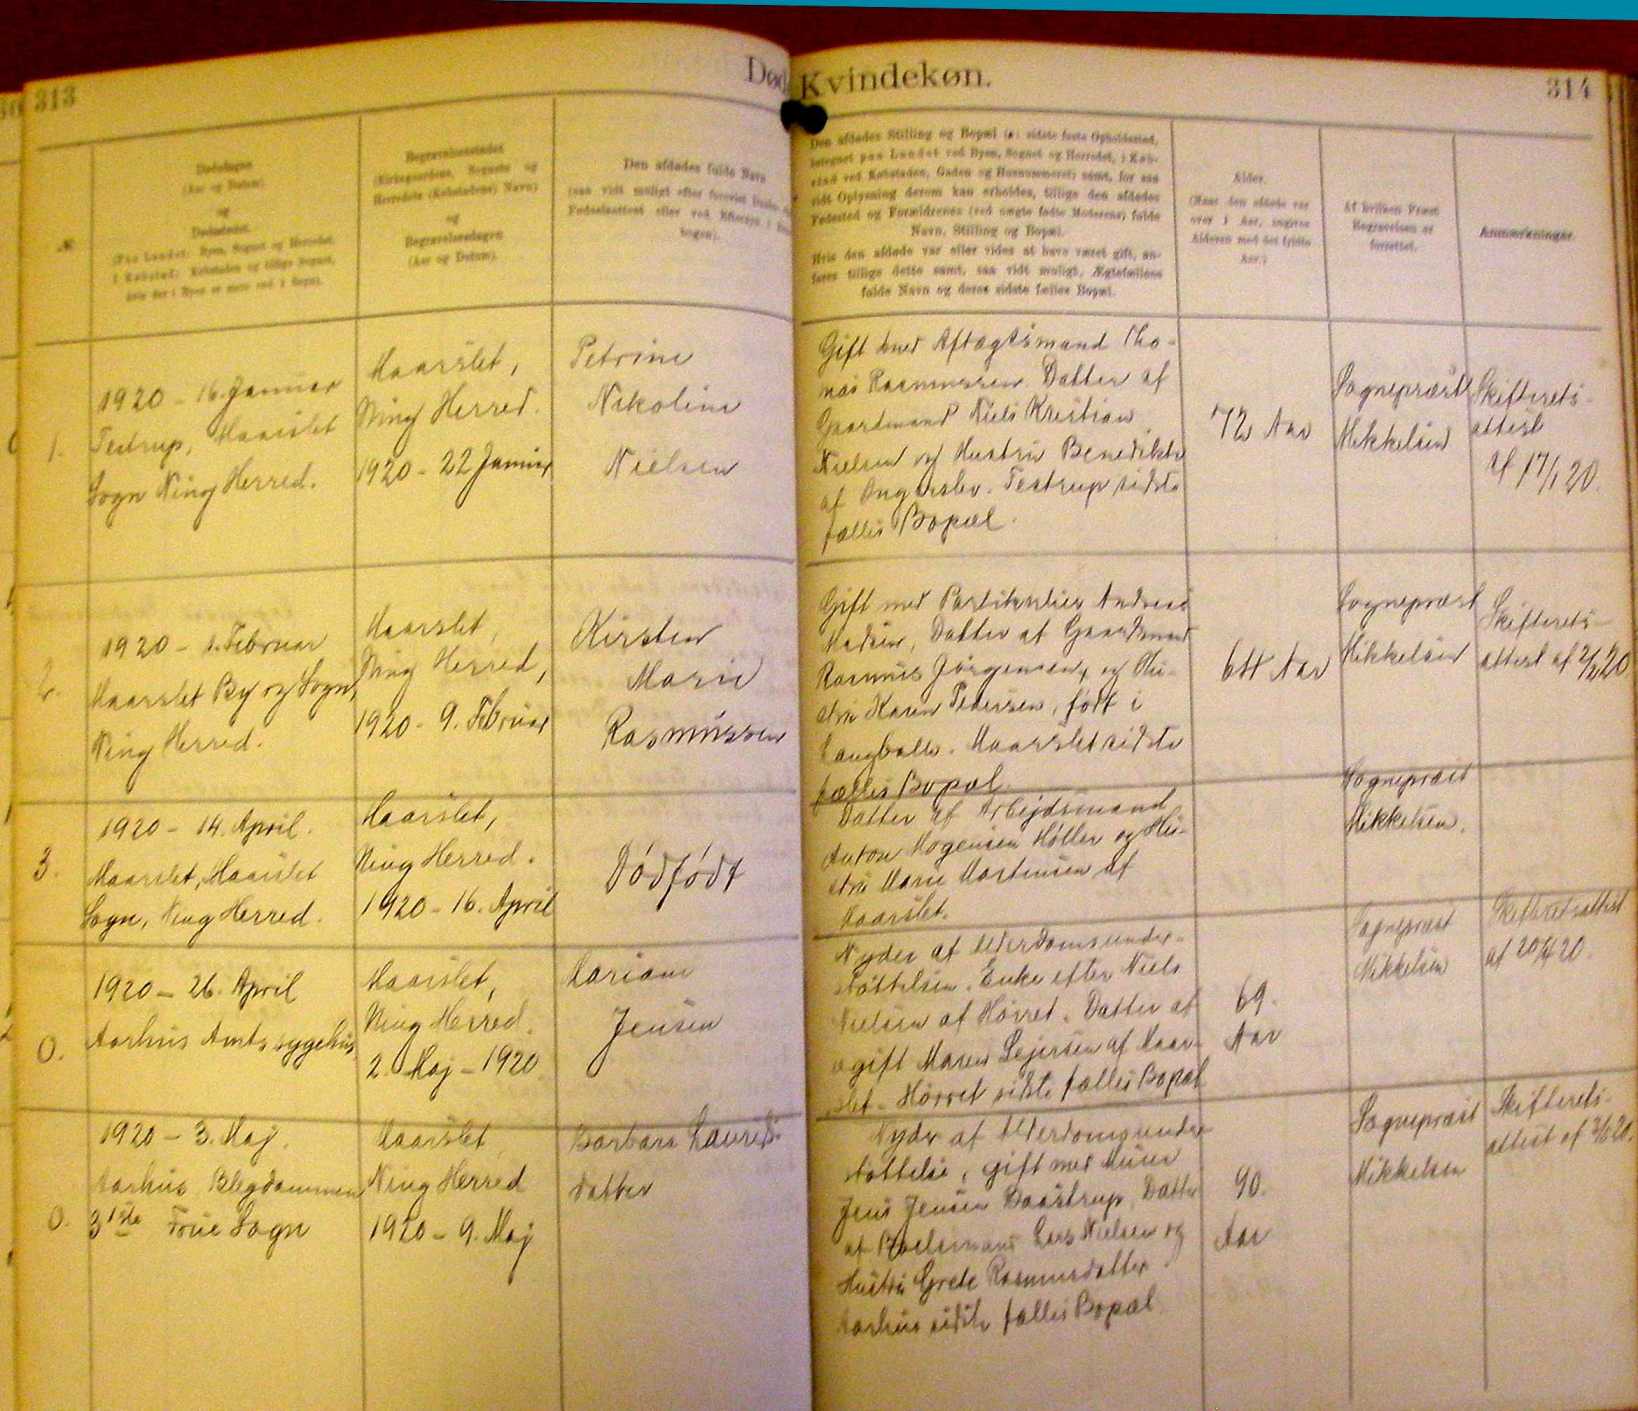 313
Død
Kvindekøn.
314
№
Dødsdagen
(Aar og Datum)
og
Dødsstedet.
(Paa Landet: Byen, Sognet og Herredet.
I Købstad: Købstaden og tillige Sognet,
hvis der i Byen er mere end 1 Sogn).
Begravelsesstedet
(Kirkegaardens, Sognets og
Herredets (Købstadens) Navn)
og
Begravelsesdagen
(Aar og Datum).
Den afdødes fulde Navn
(saa vidt muligt efter forevist
Fødselsattest eller ved Eftersyn i
bogen).
Den afdødes Stilling og Bopæl (ɔ: sidste faste Opholdssted,
betegnet paa Landet ved Byen, Sognet og Herredet, i Køb-
stad ved Købstaden, Gaden og Husnummeret) samt, for saa
vidt Oplysning derom kan erholdes, tillige den afdødes
Fødested og Forældrenes (ved uægte fødte Moderens) fulde
Navn, Stilling og Bopæl.
Hvis den afdøde var eller vides at have været gift, an-
føres tillige dette samt, saa vidt muligt, Ægtefællens
fulde Navn og deres sidste fælles Bopæl.
Alder.
(Naar den afdøde var
over 1 Aar, angives
Alderen med det fyldte
Aar.)
Af hvilken Præst
Begravelsen er
forrettet.
Anmærkninger.
1.
1920 – 16. Januar
Testrup, Maarslet
Sogn Ning Herred.
Maarslet,
Ning Herred.
1920 – 22 Januar
Petrine
Nikoline
Nielsen
Gift med Aftægtsmand Tho-
mas Rasmussen Datter af
Gaardmand Niels Kristian
Nielsen og Hustru Benedikte
af Onsgaards. Testrup sidste
fælles Bopæl.
72 Aar
Sognepræst
Mikkelsen
Skifterets-
attest
af 17/1 20.
2.
1920 – 1. Februar
Maarslet By og Sogn,
Ning Herred.
Maarslet,
Ning Herred,
1920 – 9. Februar
Kirsten
Marie
Rasmussen
Gift med Partikulier Andreas
Madsen, Datter af Gaardmand
Rasmus Jørgensen, og Hu-
stru Karen Pedersen, født i
Langballe. Maarslet sidste
fælles Bopæl.
64 Aar
Sognepræst
Mikkelsen
Skifterets-
attest af 2/2 20
3.
1920 – 14. April.
Maarslet, Maarslet
Sogn, Ning Herred.
Maarslet,
Ning Herred.
1920 – 16. April
Dødfødt
Datter af Arbejdsmand
Anton Mogensen Møller og Hu-
stru Marie Martensen af
Maarslet.
Sognepræst
Mikkelsen.
0.
1920 – 26. April
Aarhus Amtssygehus
Maarslet,
Ning Herred.
2. Maj – 1920
Mariane
Jensen
Nyder af Alderdomsunder-
støttelsen. Enke efter Niels
Nielsen af Hørret. Datter af
ugift Maren Sejersen af Maar-
slet. Hørret sidste fælles Bopæl
69.
Aar
Sognepræst
Mikkelsen
Skifteretsattest
af 20.
0.
1920 – 3. Maj.
Aarhus Blegdammen
Frue Sogn
Maarslet,
Ning Herred
1920 – 9. Maj
Barbara Laurids-
datter
Nyder af Alderdomsunder-
støttelse, gift med Murer
Jens Jensen Baastrup, Datter
af Boelsmand Lars Nielsen og
Hustru Grete Rasmusdatter
Aarhus sidste fælles Bopæl
90.
Aar
Sognepræst
Mikkelsen
Skifterets-
attest af 20.